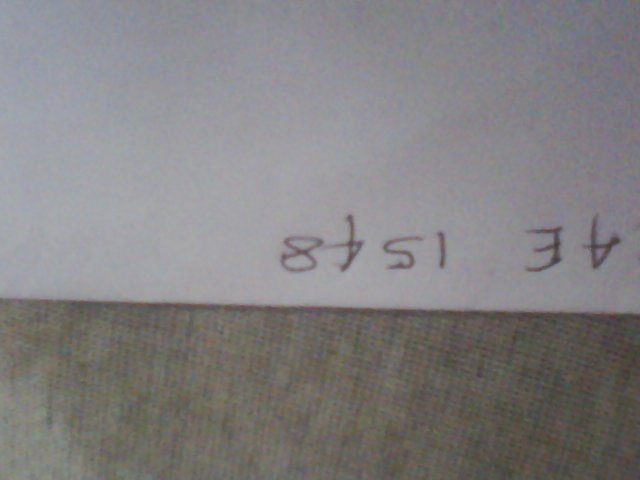 4E 1548